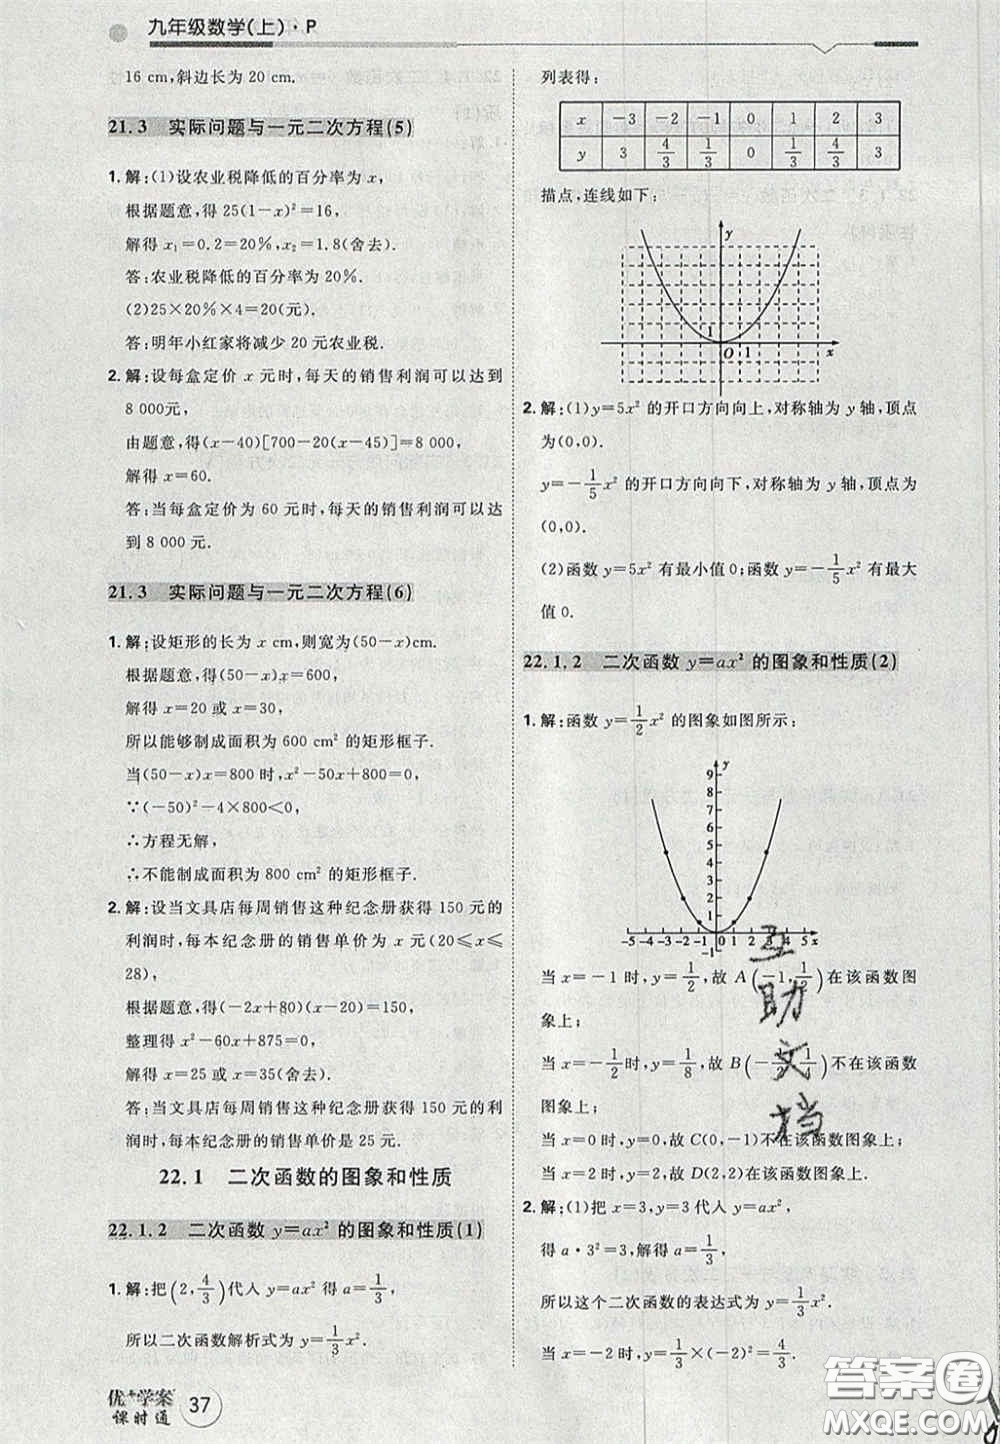 九年级数学(上)·P
16 cm,斜边长为 20 cm.
21.3 实际问题与一元二次方程(5)
1. 解:(1)设农业税降低的百分率为 x,
根据题意,得 25(1－x)²＝16,
解得 x₁＝0.2＝20%,x₂＝1.8(舍去).
答:农业税降低的百分率为 20%.
(2)25×20%×4＝20(元).
答:明年小红家将减少 20 元农业税.
2. 解:设每盒定价 x 元时,每天的销售利润可以达到
8 000元,
由题意,得(x－40)[700－20(x－45)]＝8 000,
解得 x＝60.
答:当每盒定价为 60 元时,每天的销售利润可以达
到 8 000 元.
21.3 实际问题与一元二次方程(6)
1. 解:设矩形的长为 x cm,则宽为(50－x)cm.
根据题意,得(50－x)x＝600,
解得 x＝20 或 x＝30,
所以能够制成面积为 600 cm² 的矩形框子.
当(50－x)x＝800 时,x²－50x＋800＝0,
∵(－50)²－4×800＜0,
∴方程无解,
∴不能制成面积为 800 cm² 的矩形框子.
2. 解:设当文具店每周销售这种纪念册获得 150 元的
利润时,每本纪念册的销售单价为 x 元(20≤x≤
28),
根据题意,得(－2x＋80)(x－20)＝150,
整理得 x²－60x＋875＝0,
解得 x＝25 或 x＝35(舍去).
答:当文具店每周销售这种纪念册获得 150 元的利
润时,每本纪念册的销售单价是 25 元.
22.1 二次函数的图象和性质
22.1.2 二次函数 y＝ax² 的图象和性质(1)
1. 解:把(2,4/3)代入 y＝ax² 得 a＝1/3,
所以二次函数解析式为 y＝1/3x².
优+学案
课时通
37
列表得:
x －3 －2 －1 0 1 2 3
y 3 4/3 1/3 0 1/3 4/3 3
描点,连线如下:
y
1
O 1 x
2. 解:(1)y＝5x² 的开口方向向上,对称轴为 y 轴,顶点
为(0,0).
y＝－1/5x² 的开口方向向下,对称轴为 y 轴,顶点为
(0,0).
(2)函数 y＝5x² 有最小值 0;函数 y＝－1/5x² 有最大
值 0.
22.1.2 二次函数 y＝ax² 的图象和性质(2)
1. 解:函数 y＝1/2x² 的图象如图所示:
y
9
8
7
6
5
4
3
2
1
-5 -4 -3 -2 -1 0 1 2 3 4 5 x
-1
当 x＝－1 时,y＝1/2,故 A(－1,1/2)在该函数图
象上;
当 x＝－1/2时,y＝1/8,故 B(－1/2,1/4)不在该函数
图象上;
当 x＝0 时,y＝0,故 C(0,－1)不在该函数图象上;
当 x＝2 时,y＝2,故 D(2,2)在该函数图象上.
2. 解:(1)把 x＝3,y＝3 代入 y＝ax²,
得 a·3²＝3,解得 a＝1/3,
所以这个二次函数的表达式为 y＝1/3x².
(2)当 x＝－2 时,y＝1/3×(－2)²＝4/3.
互助文档
答案圈
MXQE.COM